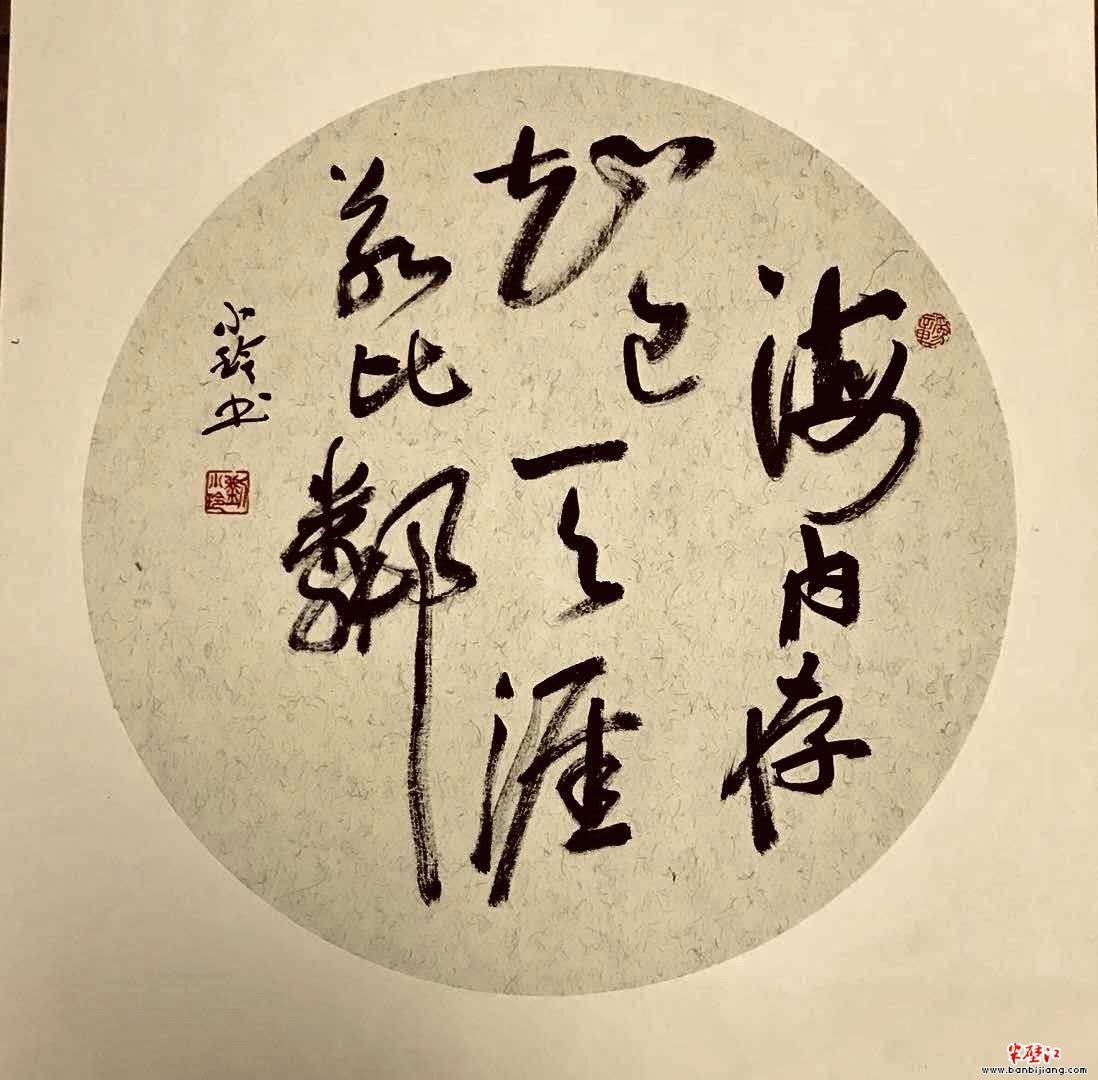 海内存
知己天涯
若比鄰
小玲书
劉小玲
半壁江
www.banbijiang.com